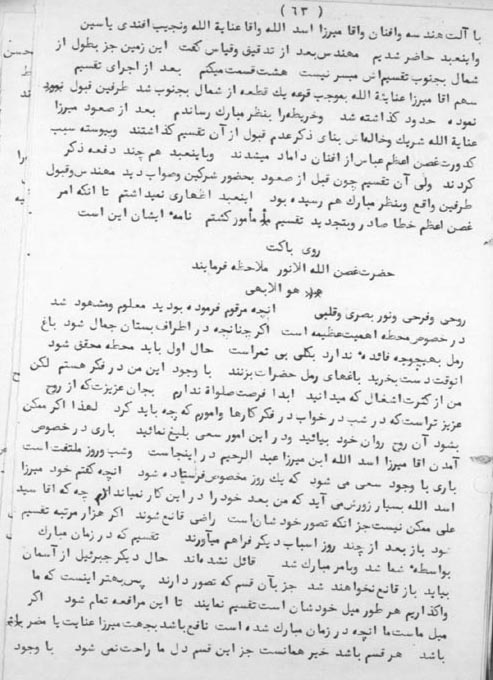 ( ٦٣ )
با آلت هندسه وافنان واقا میرزا اسد الله واقا عنایة الله ونجیب افندی یاسین
واینعبد حاضر شدیم مهندس بعد از تدقیق وقیاس گفت این زمین جز بطول از
شمال بجنوب تقسیم اش میسر نیست هشت قسمت میکنم بعد از اجرای تقسیم
سهم اقا میرزا عنایة الله بموجب قرعه یك قطعه از شمال بجنوب شد طرفین قبول
نموده حدود گذاشته شد وخریطه را بنظر مبارك رساندم بعد از صعود میرزا
عنایة الله شریك وخاله اش بنای ذکر عدم قبول از آن تقسیم گذاشتند وپیوسته سبب
کدورت غصن اعظم عباس از افنان داماد میشدند وباینعبد هم چند دفعه ذکر
کردند ولی آن تقسیم چون قبل از صعود بحضور شرکین وصواب دید مهندس وقبول
طرفین واقع وبنظر مبارك هم رسیده بود اینعبد اظهاری نمیداشتم تا انکه امر
غصن اعظم خطا صادر وبتجدید تقسیم مأمور کشتم نامهٴ ایشان این است
روی پاکت
حضرت غصن الله الانور ملاحظه فرمایند
هو الابهی
روحی وفرحی ونور بصری وقلبی انچه مرقوم فرموده بودید معلوم ومشهود شد
در خصوص محطه اهمیت عظیمه است اکر چنانچه در اطراف بستان جمال شود باغ
رمل بهیچوجه فائدهٴ ندارد بکلی بی ثمر است حال اول باید محطه محقق شود
انوقت دست بخرید باغهای رمل حضرات بزنند با وجود این من در فکر هستم لکن
من از کثرت اشغال که میدانید ابدا فرصت صلواة ندارم بجان عزیزت که از روح
عزیز تر است که در شب در خواب در فکر کارها وامورم که چه باید کرد لهذا اکر ممکن
بشود آن روح روان خود بیائید ودر این امور سعی بلیغ نمائید باری در خصوص
آمدن اقا میرزا اسد الله ابن میرزا عبد الرحیم در اینجاست وشب وروز ملتفت است
باری با وجود سعی می شود که یك روز مخصوص فرستاده شود انچه گفتم خود میرزا
اسد الله بسیار زورش می آید که من بعد خود را در این کار نمیاندازم چه که اقا سید
علی ممکن نیست جز انکه تصور خود شان است راضی قانع شوند اکر هزار مرتبه تقسیم
شود باز بعد از چند روز اسباب دیکر فراهم میآورند تقسیم که در زمان مبارك
بواسطهٴ شما شد وبامر مبارك شد قائل نشده اند حال دیکر جبرئیل از آسمان
بیاید باز قانع نخواهند شد جز بآن قسم که تصور دارند پس بهتر اینست که ما
واگذاریم هر طور میل خودشان است تقسیم نمایند تا این مرافعه تمام شود اکر
میل ماست ما انچه در زمان مبارك شده است نافع باشد بجهت میرزا عنایت یا مضر
باشد هر قسم باشد خیر همانست جز این قسم دل ما راحت نمی شود با وجود